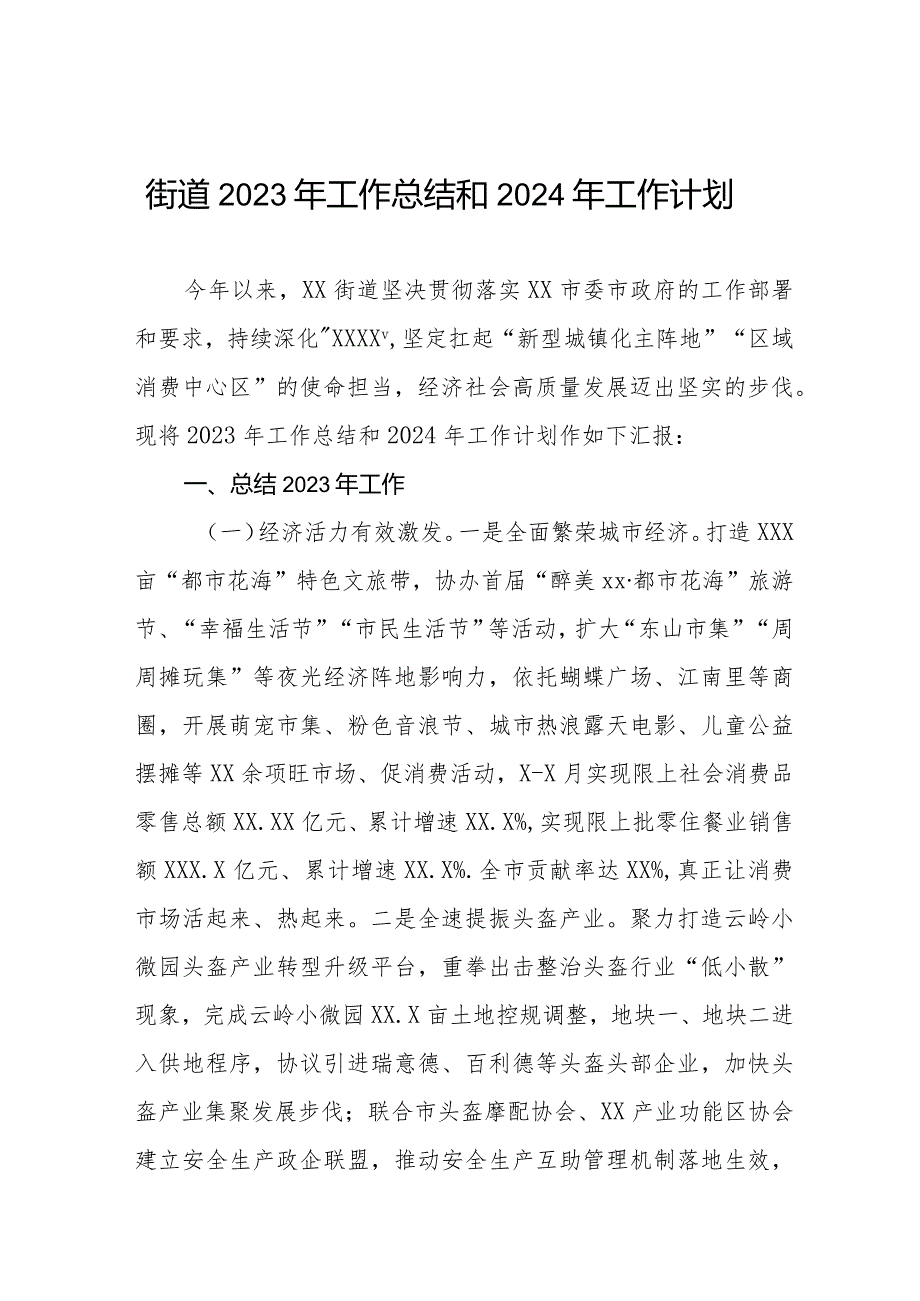 街道2023年工作总结和2024年工作计划
今年以来，XX街道坚决贯彻落实XX市委市政府的工作部署
和要求，持续深化"XXXXᵛ,坚定扛起“新型城镇化主阵地”“区域
消费中心区”的使命担当，经济社会高质量发展迈出坚实的步伐。
现将2023年工作总结和2024年工作计划作如下汇报：
一、总结2023年工作
（一）经济活力有效激发。一是全面繁荣城市经济。打造XXX
亩“都市花海”特色文旅带，协办首届“醉美xx·都市花海”旅游
节、“幸福生活节”“市民生活节”等活动，扩大“东山市集”“周
周摊玩集”等夜光经济阵地影响力，依托蝴蝶广场、江南里等商
圈，开展萌宠市集、粉色音浪节、城市热浪露天电影、儿童公益
摆摊等XX余项旺市场、促消费活动，X-X月实现限上社会消费品
零售总额XX.XX亿元、累计增速XX.X%,实现限上批零住餐业销售
额XXX.X亿元、累计增速XX.X%.全市贡献率达XX%,真正让消费
市场活起来、热起来。二是全速提振头盔产业。聚力打造云岭小
微园头盔产业转型升级平台，重拳出击整治头盔行业“低小散”
现象，完成云岭小微园XX.X亩土地控规调整，地块一、地块二进
入供地程序，协议引进瑞意德、百利德等头盔头部企业，加快头
盔产业集聚发展步伐；联合市头盔摩配协会、XX产业功能区协会
建立安全生产政企联盟，推动安全生产互助管理机制落地生效，